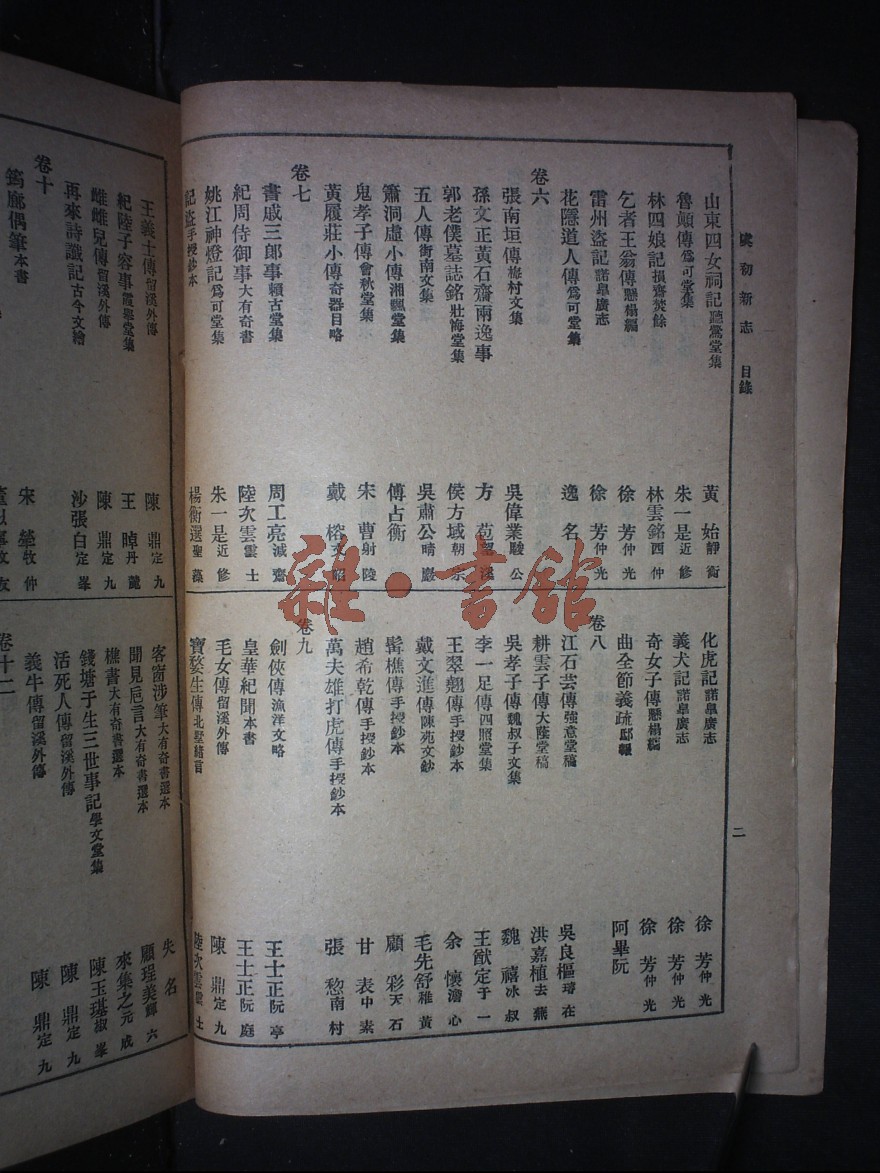 虞初新志 目錄
二
山東四女祠記聽鶯堂集 黃 始靜衛
魯顛傳爲可堂集 朱一是近修
林四娘記損齋焚餘 林雲銘西仲
乞者王翁傳懸榻編 徐 芳仲光
雷州盜記諾臯廣志 徐 芳仲光
花隱道人傳爲可堂集 逸 名
卷六
張南垣傳梅村文集 吳偉業駿公
孫文正黃石齋兩逸事 方 苞
郭老僕墓誌銘壯悔堂集 侯方域朝宗
五人傳街南文集 吳肅公晴巖
簫洞虛小傳湘颿堂集 傅占衡
鬼孝子傳會秋堂集 宋 曹射陵
黃履莊小傳奇器目略 戴 榕文昭
卷七
書戚三郎事賴古堂集 周工亮減齋
紀周侍御事大有奇書 陸次雲雲士
姚江神燈記爲可堂集 朱一是近修
記盜手授鈔本 楊衡選聖藻
化虎記諾臯廣志 徐 芳仲光
義犬記諾臯廣志 徐 芳仲光
奇女子傳懸榻編 徐 芳仲光
曲全節義疏邸報 阿畢阮
卷八
江石芸傳強意堂稿 吳良樞璿在
耕雲子傳大蔭堂稿 洪嘉植去蕪
吳孝子傳魏叔子文集 魏 禧冰叔
李一足傳四照堂集 王猷定于一
王翠翹傳手授鈔本 余 懷澹心
戴文進傳陳苑文鈔 毛先舒稚黃
髯樵傳手授鈔本 顧 彩天石
趙希乾傳手授鈔本 甘 表中素
萬夫雄打虎傳手授鈔本 張 惣南村
卷九
劍俠傳漁洋文略 王士正阮亭
皇華紀聞本書 王士正阮庭
毛女傳留溪外傳 陳 鼎定九
寶婺生傳北墅緒言 陸次雲雲士
王義士傳留溪外傳 陳 鼎定九
紀陸子容事霞舉堂集 王 晫丹麓
雌雌兒傳留溪外傳 陳 鼎定九
再來詩讖記古今文繪 沙張白定峯
卷十
筠廊偶筆本書 宋 犖牧仲
客窗涉筆大有奇書選本 失 名
聞見巵言大有奇書選本 顧珵美輝六
樵書大有奇書選本 來集之元成
錢塘于生三世事記學文堂集 陳玉璂椒峯
活死人傳留溪外傳 陳 鼎定九
義牛傳留溪外傳 陳 鼎定九
卷十二
雜·書館